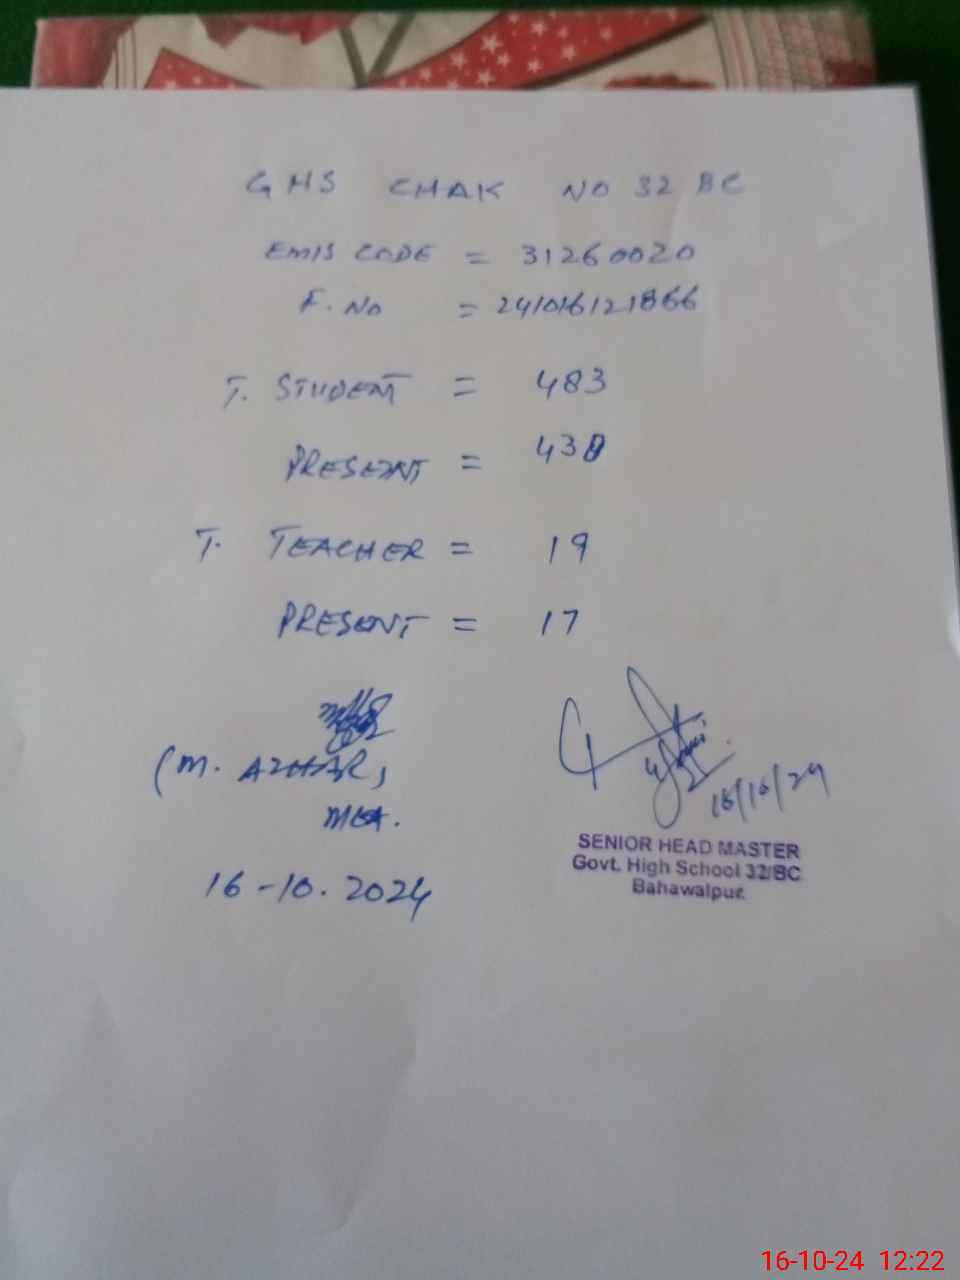 GHS CHAK NO 32 BC
EMIS CODE = 31260020
F. NO = 241016121866
T. STUDENT = 483
PRESENT =
T. TEACHER = 19
PRESENT = 17
(M. AZHAR)
MEA.
16-10.2024
16/10/24
SENIOR HEAD MASTER
Govt. High School 32/BC
Bahawalpur.
16-10-24 12:22